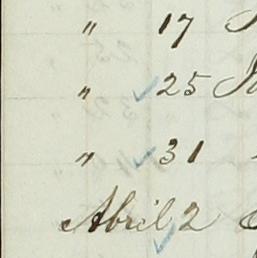 " 17
" 25
" 31
April 2